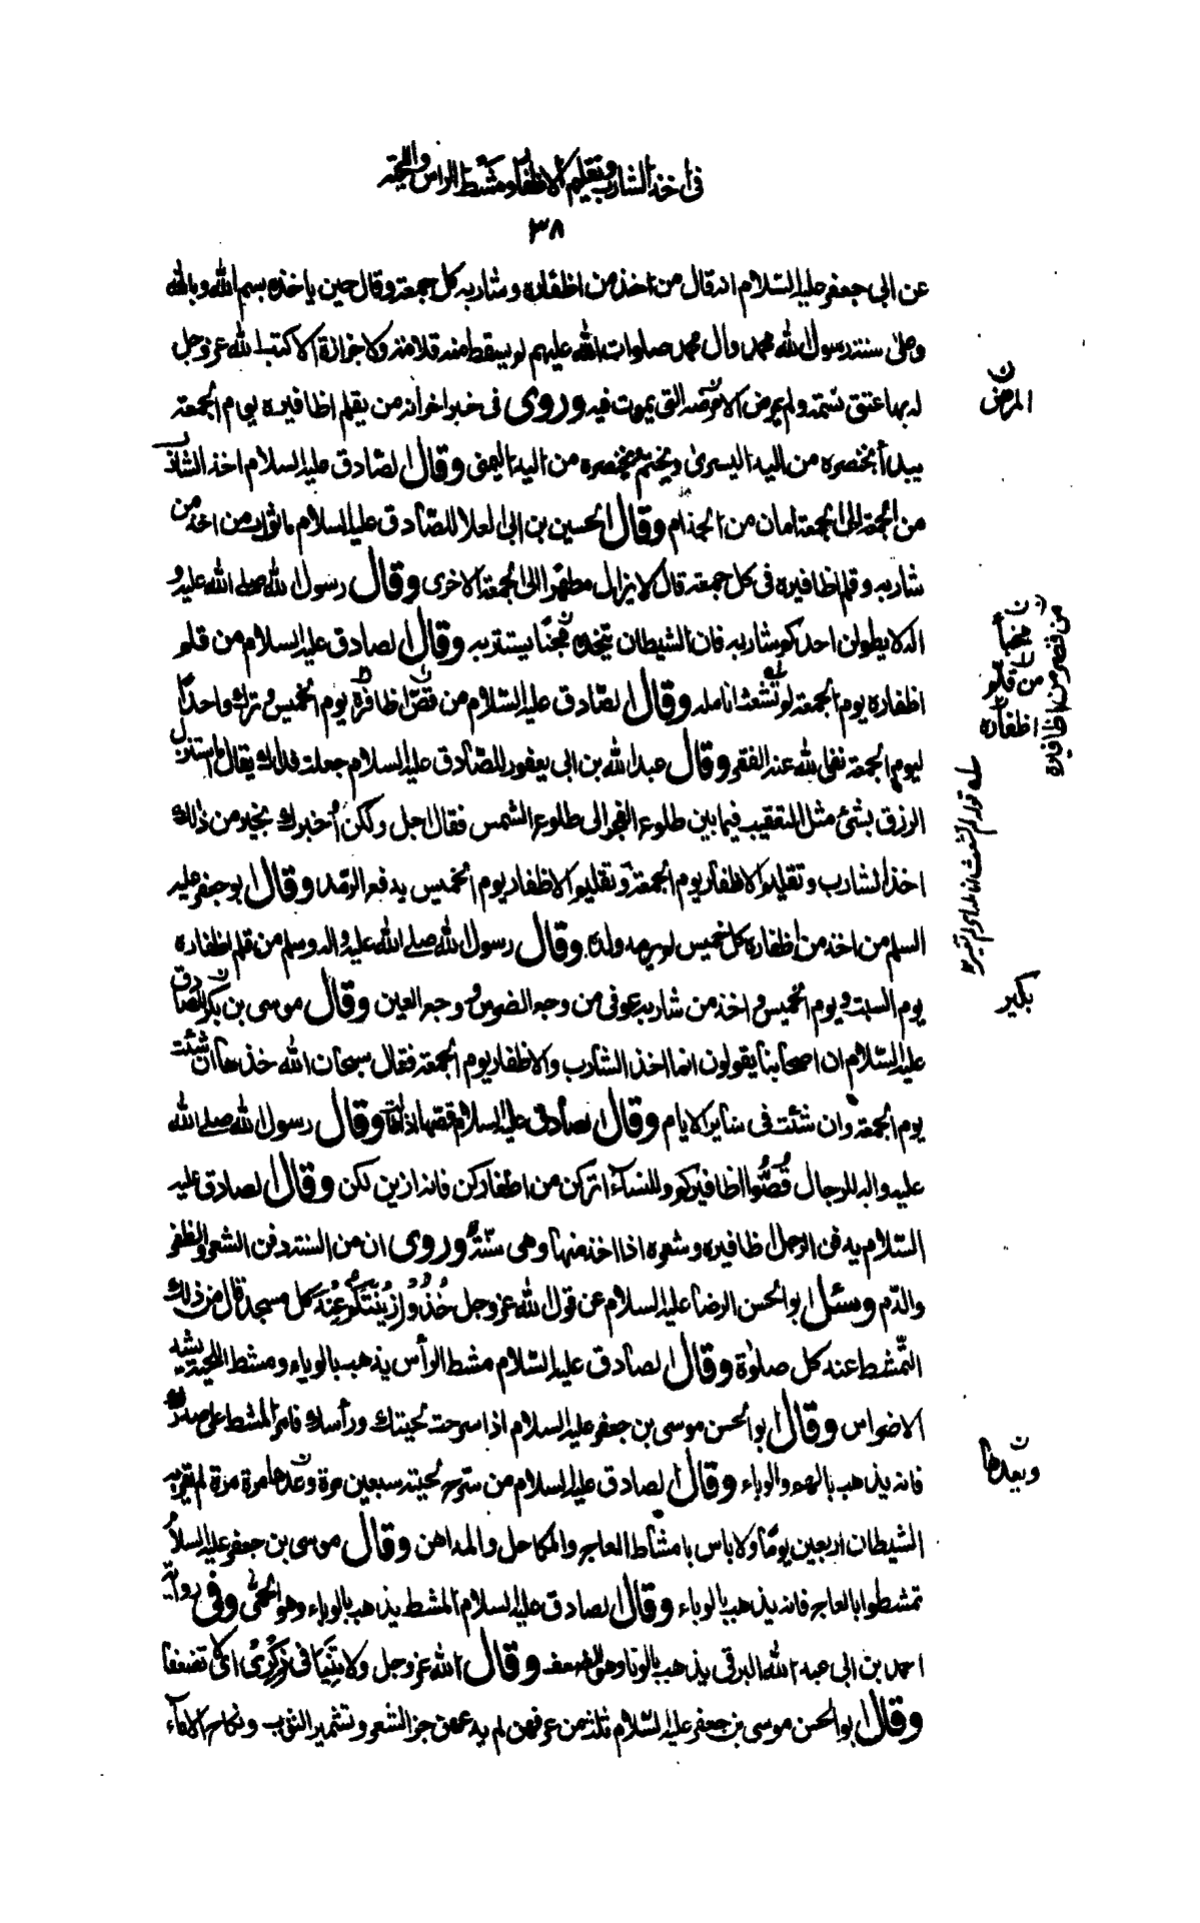 فى اخذ الشارب وتقليم الاظفار ومشط الراس واللحية
٣٨
عن ابى جعفر عليه السلام انه قال من اخذ من اظفاره و شاربه كل جمعة و قال حين ياخذه بسم الله و بالله
وعلى سنة رسول الله محمد وال محمد صلوات الله عليهم لم يسقط منه قلامة ولا جزازة الا كتب الله عز و جل
له بها عتق نسمة و لم يمرض الا مرضه التى يموت فيه و روى فى خبر اخر انه من يقلم اظافيره يوم الجمعة
يبدأ بخنصره من اليد اليسرى و يختم بخنصره من اليد اليمنى و قال الصّادق عليه السلام اخذ الشارب
من الجمعة الى الجمعة امان من الجذام و قال الحسين بن ابى العلا للصّادق عليه السلام ما ثواب من اخذ من
شاربه و قلم اظافيره فى كل جمعة قال لا يزال مطهرًا الى الجمعة الاخرى و قال رسول الله صلى الله عليه و
اله لا يطولن احدكم شاربه فان الشيطان يتخذه مجنًا يستتر به و قال الصادق عليه السلام من قلم
اظفاره يوم الجمعة لم تشعث انامله و قال الصّادق عليه السلام من قصّ اظافره يوم الخميس و ترك واحدًا
ليوم الجمعة نفى الله عنه الفقر و قال عبد الله بن ابى يعفور للصّادق عليه السلام جعلت فداك يقال ما استنزل
الرزق بشئ مثل التعقيب فيما بين طلوع الفجر الى طلوع الشمس فقال اجل و لكن أخبرك بخير من ذلك
اخذ الشارب و تقليم الاظفار يوم الجمعة و تقليم الاظفار يوم الخميس يدفع الرّمد و قال ابو جعفر عليه
السلم من اخذ من اظفاره كل خميس لم يرمد ولده و قال رسول الله صلى الله عليه و اله و سلم من قلم اظفاره
يوم السبت و يوم الخميس و اخذ من شاربه عوفى من وجع الضرس و وجع العين و قال موسى بن بكر للصّادق
عليه السّلام ان اصحابنا يقولون انما اخذ الشارب و الاظفار يوم الجمعة فقال سبحان الله خذها ان شئت
يوم الجمعة و ان شئت فى ساير الايام و قال الصادق عليه السلام قصها اذا طالت و قال رسول الله صلى الله
عليه و اله للرجال قُصُّوا اظافيركم و للنساء اتركن من اظفاركن فانه ازين لكن و قال الصادق عليه
السّلام يدفن الرجل اظافيره و شعره اذا اخذ منها و هى سنّة و روى ان من السنة دفن الشعر و الظفر
و الدّم و سئل ابو الحسن الرضا عليه السلام عن قول الله عز و جل خُذُوا زِينَتَكُمْ عِنْدَ كل مسجد قال من ذلك
التّمشط عند كل صلوٰة و قال الصادق عليه السّلام مشط الرأس يذهب بالوباء و مشط اللحية يشد
الاضراس و قال ابو الحسن موسى بن جعفر عليه السلام اذا سرحت لحيتك و رأسك فامر المشط على صدرك
فانه يذهب بالهم و الوباء و قال الصادق عليه السلام من سرّح لحيته سبعين مرة و عدها مرة مرة لم يقربه
الشيطان اربعين يومًا و لا باس بامشاط العاج و المكاحل و المداهن و قال موسى بن جعفر عليه السلام
تمشطوا بالعاج فانه يذهب بالوباء و قال الصادق عليه السلام المشط يذهب بالوباء و هو الحمّى و فى رواية
احمد بن ابى عبد الله البرقى يذهب بالونا و هو الضعف و قال الله عز و جل و لا تنيا فى ذكرى اى لا تضعفا
و قال ابو الحسن موسى بن جعفر عليه السّلام ثلث من عرفهن لم يدعهن جز الشعر و تشمير الثوب و نكاح الاماء
المرض
من قلم
اظفاره
من قصر من اظافيره
بكير
و بعدها